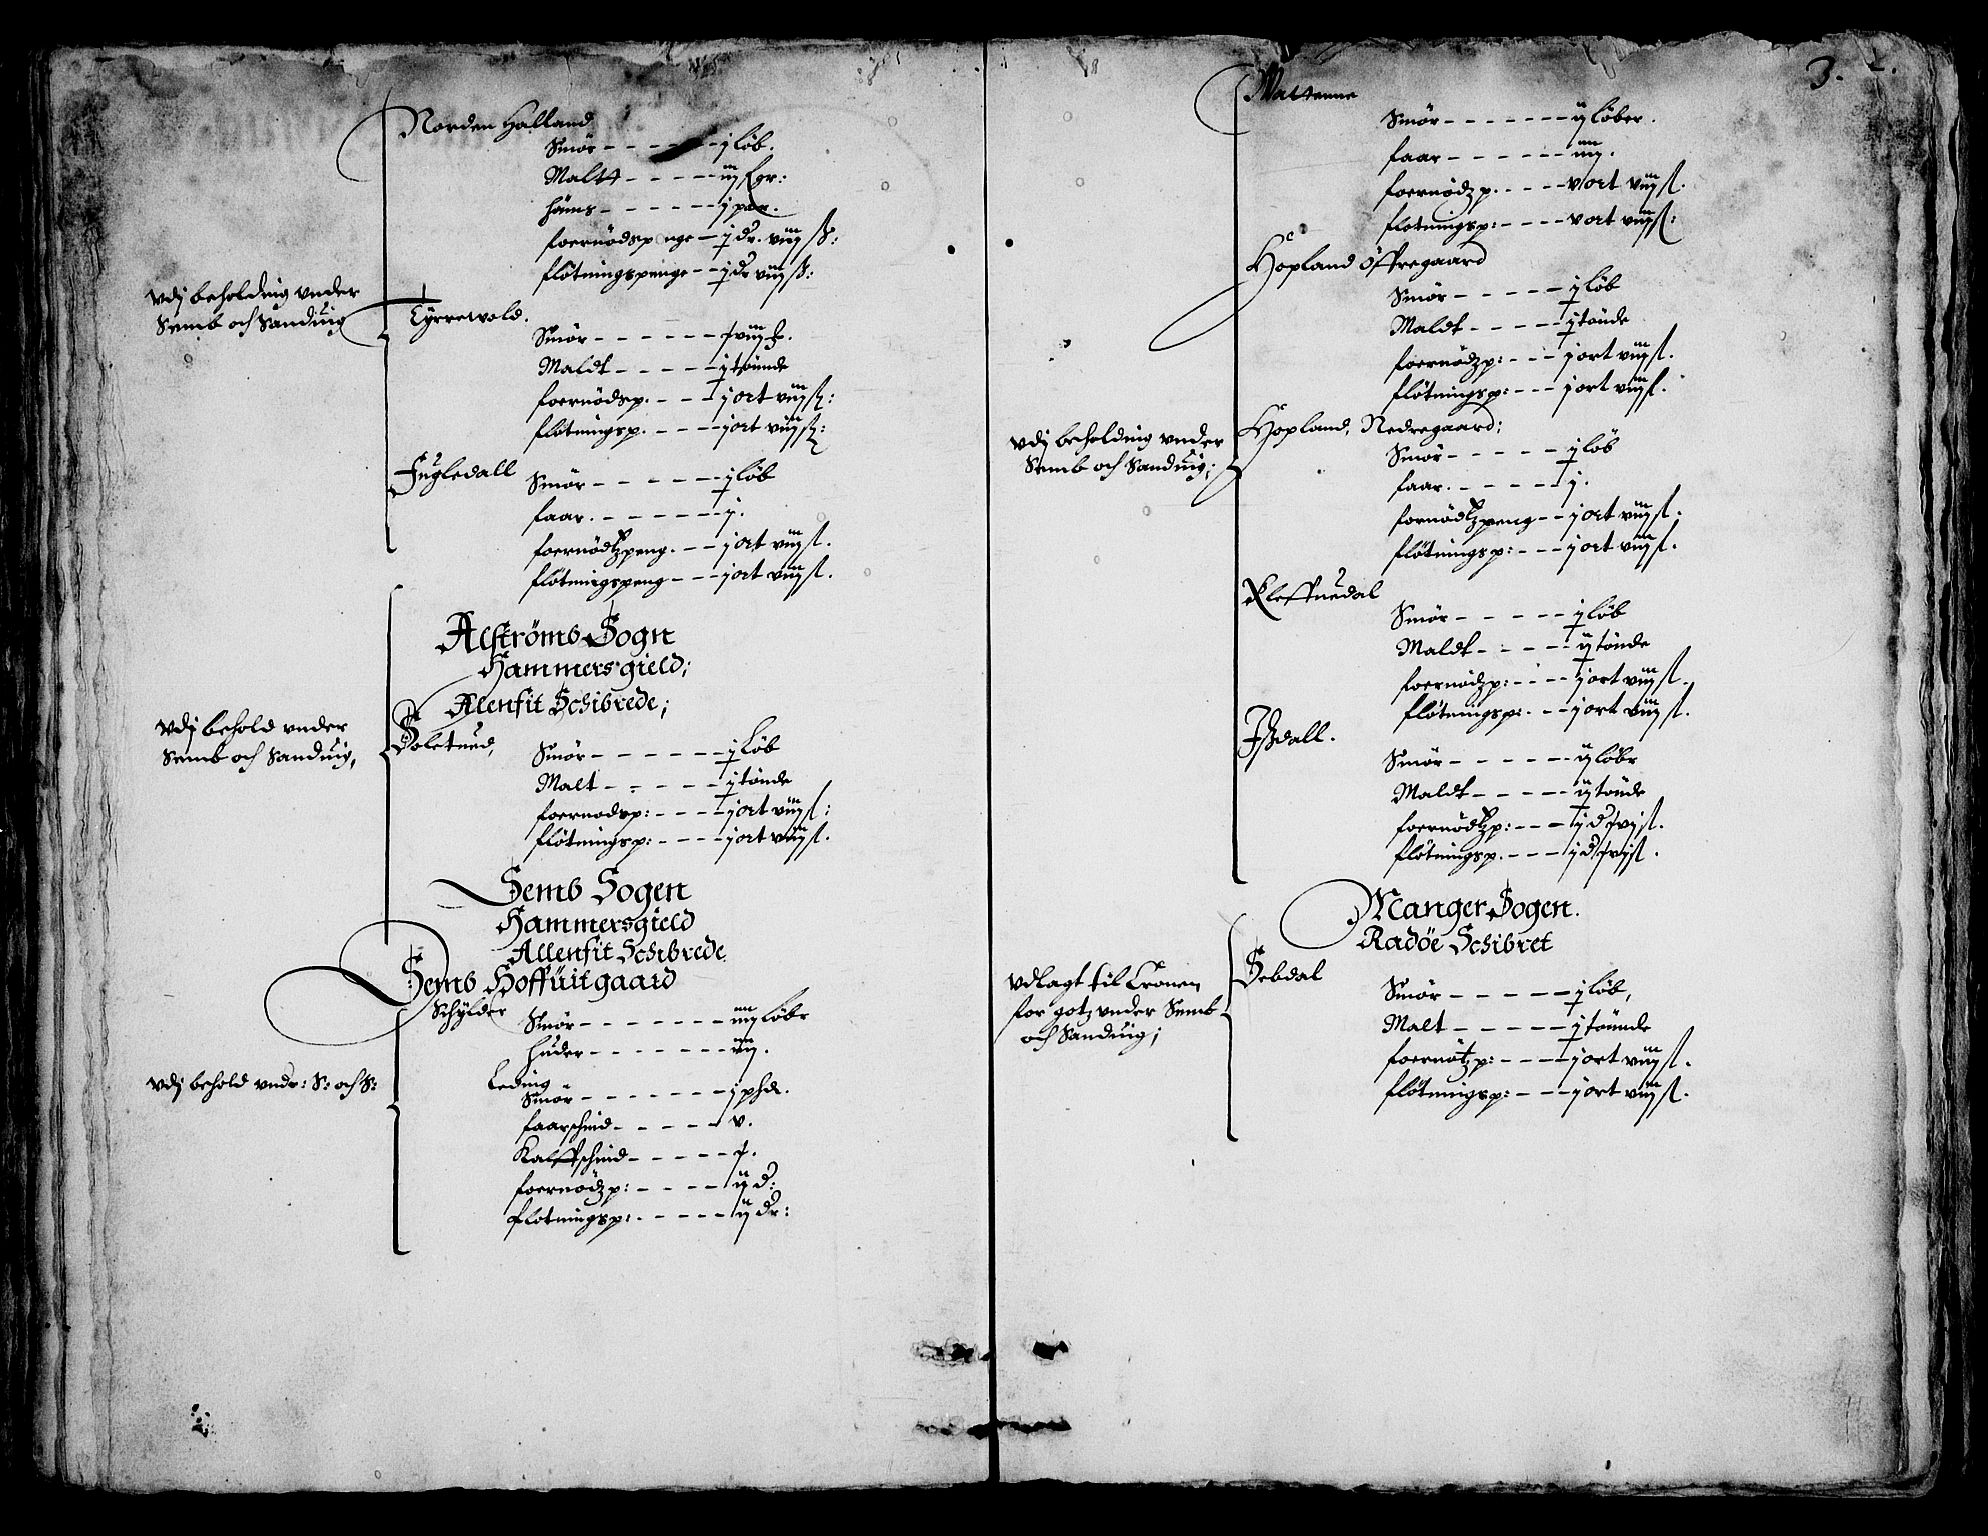 Norden Halland
Smör - - - - - - j löb.
Maltt - - - - iij
höns - - - - - j par.
foernödspenge - j dr. viij ß:
flötningspenge - - j dr viij ß:
Vdj beholding vnder
Semb och Sanduig
Tÿrrewold.
Smör - - - - - -
Maldt - - - - j tönnde
foernödsp. - - - j ort viij ß:
flötningsp. - - - j ort viij ß:
Fugledall
Smör - - - - - j löb
faar. - - - - - - j.
foernödtzpeng. - - j ort viij ß.
flötningspeng - - - j ort viij ß.
Alströms Sogn
Hammersgield;
Alenfit Schibrede;
Vdj behold vnder
Semb och Sanduig,
Soletued,
Smör - - - - - - j löb
Malt - - - - - j tönde
foernodsp: - - - j ort viij ß:
flötningsp: - - - j ort viij ß.
Semb Sogen
Hammersgield
Allenfit Schibrede
Semb Hoffuitgaard
Schÿlder
Smör - - - - - - - iiij löbr
huder - - - - - - - iij.
Vdj behold vndr: S: och S:
Leding
Smör - - - - - - - j pd.
faarschind - - - - - v.
Kalffschind - - - - -
foernödzp: - - - - ij d:
flötningsp: - - - - - ij dr:
3.
Smör - - - - - - - ij löber.
faar - - - - - - iiij.
foernödzp. - - - - v ort viij ß.
flotningsp: - - - - v ort viij ß:
Hopland Öffregaard
Smör - - - - - j löb
Maldt - - - - - j tönde
foernödzp: - - - j ort viij ß.
flötningsp: - - - j ort viij ß.
Vdj beholding vnder
Semb och Sanduig;
Hopland, Nedregaard;
Smör - - - - - j löb
faar. - - - - - - j.
fornödtzpeng - - j ort viij ß.
flötningsp: - - - j ort viij ß.
Kleffuedal
Smör - - - - - j löb
Maldt - - - - - ij tönde
foernödzp: - - - j ort viij ß.
flötningsp: - - - j ort viij ß.
Ißdall.
Smör - - - - - - ij löbr
Maldt - - - - - ij tönde
foernödtzp: - - -
flötningsp. - - -
Manger Sogen.
Radöe Schibret
Vdlagt til Cronen
for gotz vnder Semb
och Sanduig;
Sebdal
Smör - - - - - j löb,
Malt - - - - - j tönnde
foernötzp: - - - - j ort viij ß.
flötningsp: - - - j ort viij ß.